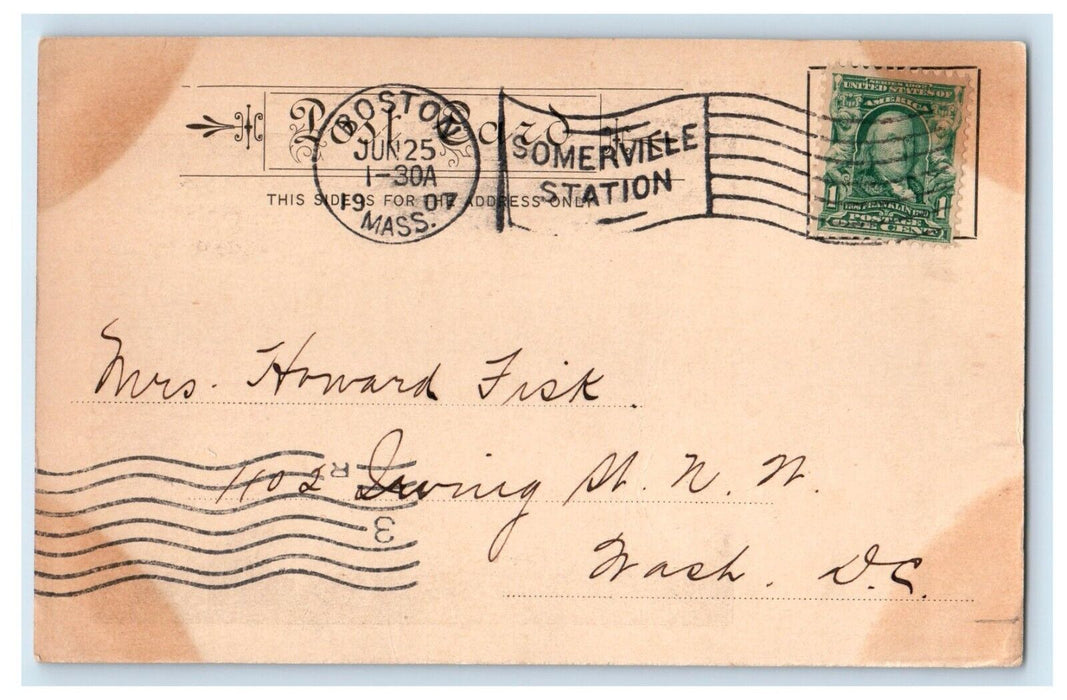 Post Card
THIS SIDE IS FOR THE ADDRESS ONLY
BOSTON
JUN 25
1-30A
19 07
MASS.
SOMERVILLE
STATION
SERIES 1902
UNITED STATES OF
AMERICA
1 FRANKLIN 1
POSTAGE
ONE CENT
Mrs. Howard Fisk.
402 Irving St. N. W.
Wash. D.C.
R
3